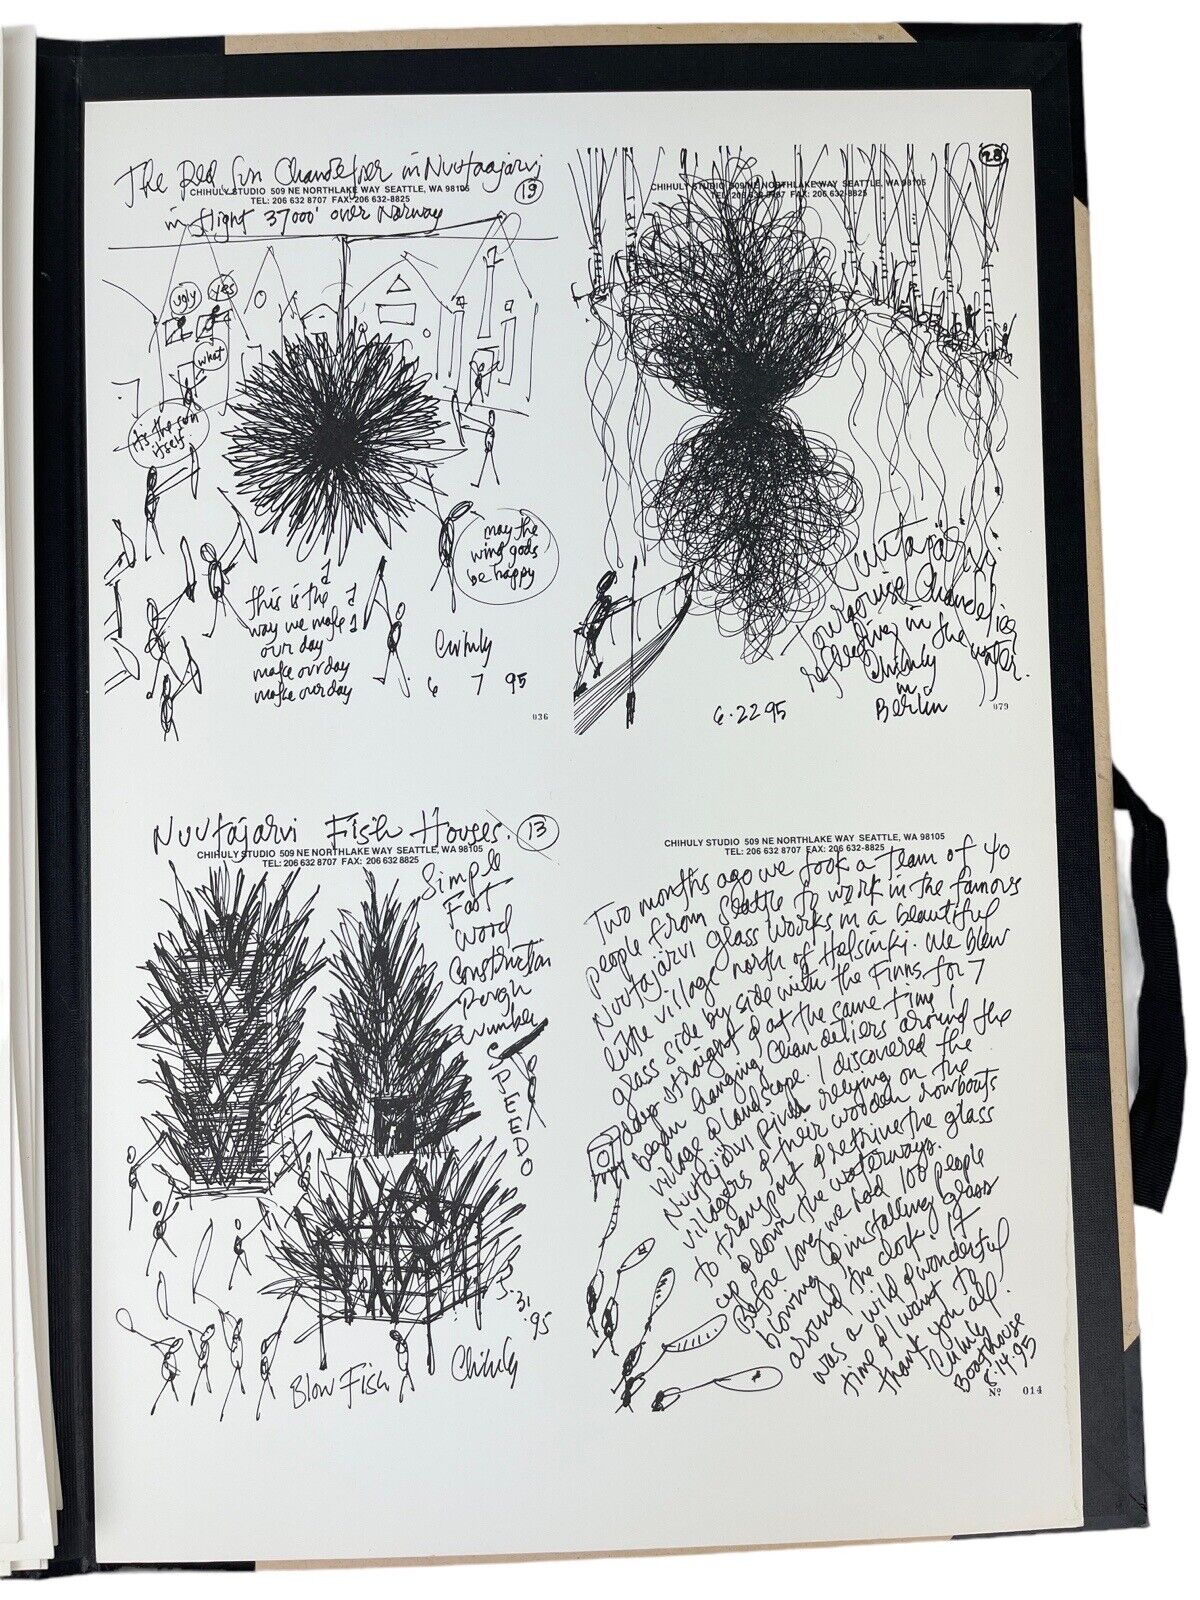 The Red Sun Chandelier in Nuutaajarvi
19
CHIHULY STUDIO 509 NE NORTHLAKE WAY SEATTLE, WA 98105
TEL: 206 632 8707 FAX: 206 632-8825
in flight 37000' over Norway
ugly
yes
what
it's the sun
itself
may the
wing gods
be happy
this is the
way we make
our day
make our day
make our day
Chihuly
6 7 95
036
28
CHIHULY STUDIO 509 NE NORTHLAKE WAY SEATTLE, WA 98105
TEL: 206 632-8707 FAX: 206 632-8825
Nuutajärvi
Tourquise Chandelier
reflecting in the water.
Chihuly
in
Berlin
6.22 95
079
Nuutajarvi Fish Houses.
13
CHIHULY STUDIO 509 NE NORTHLAKE WAY SEATTLE, WA 98105
TEL: 206 632 8707 FAX: 206 632 8825
Simple
Fast
Wood
Construction
Rough
Number
SPEEDO
5.31.95
Blow Fish
Chihuly
CHIHULY STUDIO 509 NE NORTHLAKE WAY SEATTLE, WA 98105
TEL: 206 632 8707 FAX: 206 632-8825
Two months ago we took a team of 40
people from Seattle to work in the famous
Nuutajärvi glass works in a beautiful
little village north of Helsinki. We blew
glass side by side with the Finns for 7
days straight & at the same time I
began hanging Chandeliers around the
village & landscape. I discovered the
Nuutajärvi River relying on the
villagers & their wooden rowboats
to transport & retrieve the glass
up & down the waterways.
Before long we had 100 people
blowing & installing glass
around the clock. It
was a wild & wonderful
time & I want to
thank you all.
Chihuly
Boathouse
8.14.95
Nº 014